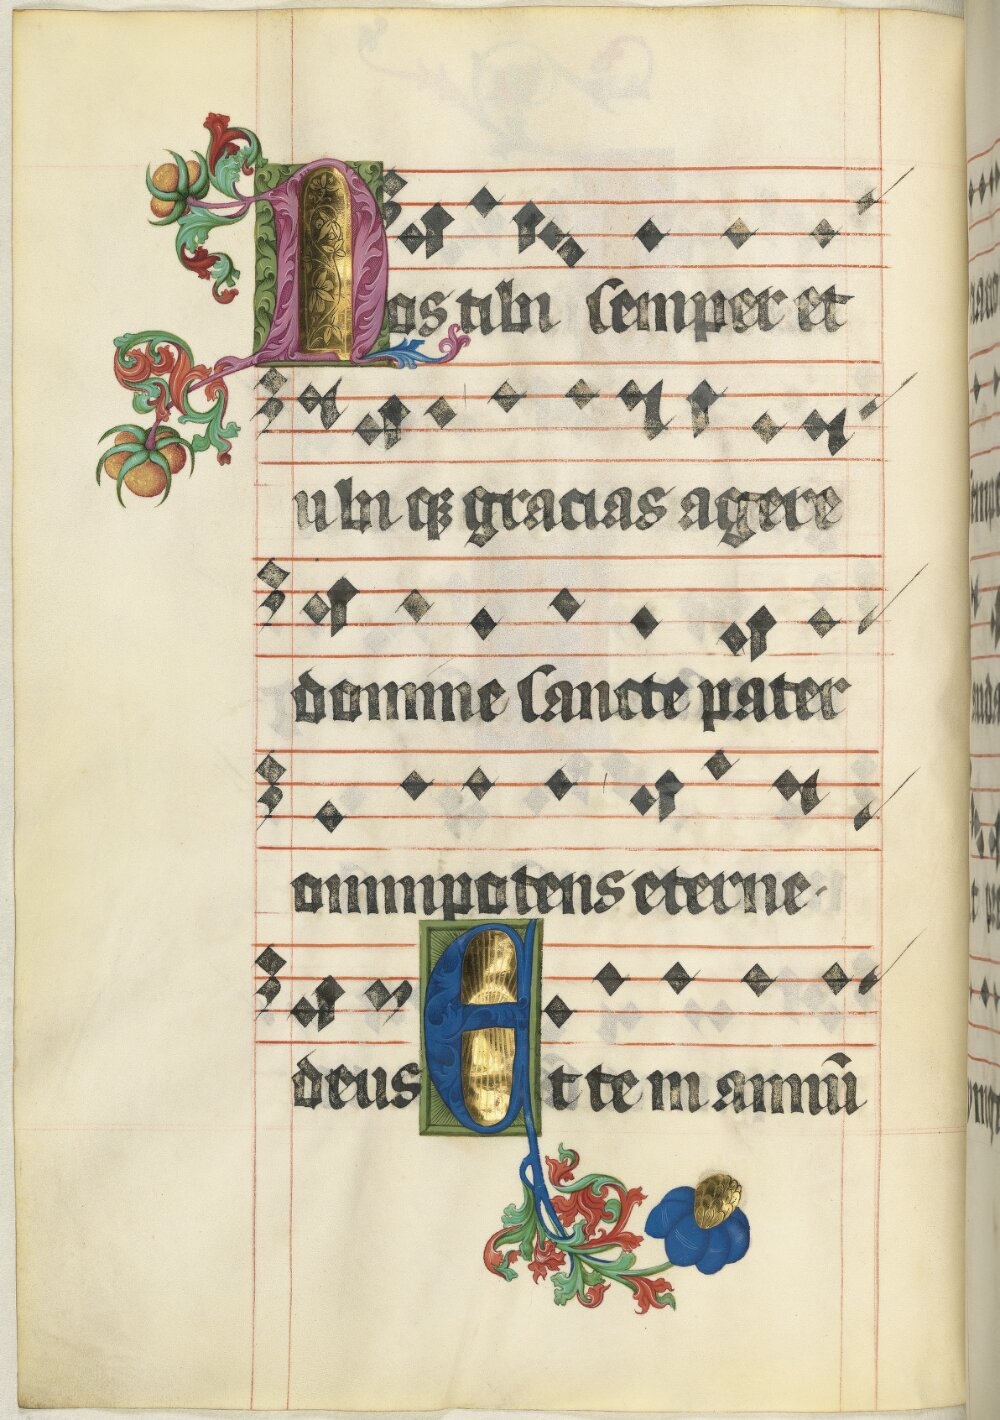 Nos tibi semper et
ubiq&#x75; gracias agere
domine sancte pater
omnipotens eterne
deus Et te in annuū